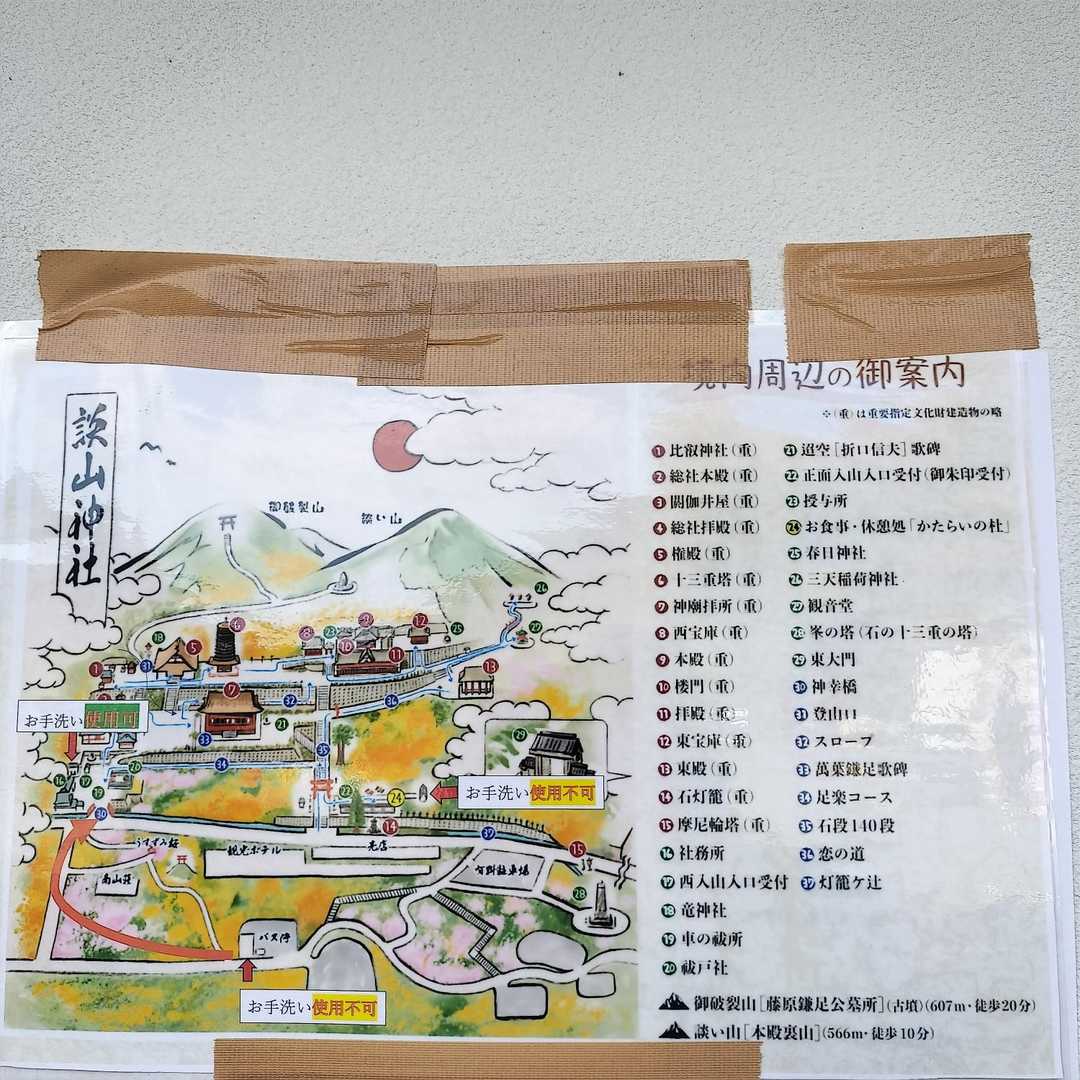 境内周辺の御案内
※(重)は重要指定文化財建造物の略
談山神社
御破裂山
談い山
お手洗い使用可
お手洗い使用不可
うすずみ桜
南山荘
観光ホテル
売店
有料駐車場
バス停
お手洗い使用不可
1 比叡神社(重)
2 総社本殿(重)
3 閼伽井屋(重)
4 総社拝殿(重)
5 権殿(重)
6 十三重塔(重)
7 神廟拝所(重)
8 西宝庫(重)
9 本殿(重)
10 楼門(重)
11 拝殿(重)
12 東宝庫(重)
13 東殿(重)
14 石灯籠(重)
15 摩尼輪塔(重)
16 社務所
17 西入山入口受付
18 竜神社
19 車の祓所
20 祓戸社
21 迢空[折口信夫]歌碑
22 正面入山入口受付(御朱印受付)
23 授与所
24 お食事・休憩処「かたらいの杜」
25 春日神社
26 三天稲荷神社
27 観音堂
28 峯の塔(石の十三重の塔)
29 東大門
30 神幸橋
31 登山口
32 スロープ
33 萬葉鎌足歌碑
34 足楽コース
35 石段140段
36 恋の道
37 灯籠ケ辻
御破裂山[藤原鎌足公墓所](古墳)(607m・徒歩20分)
談い山[本殿裏山](566m・徒歩10分)